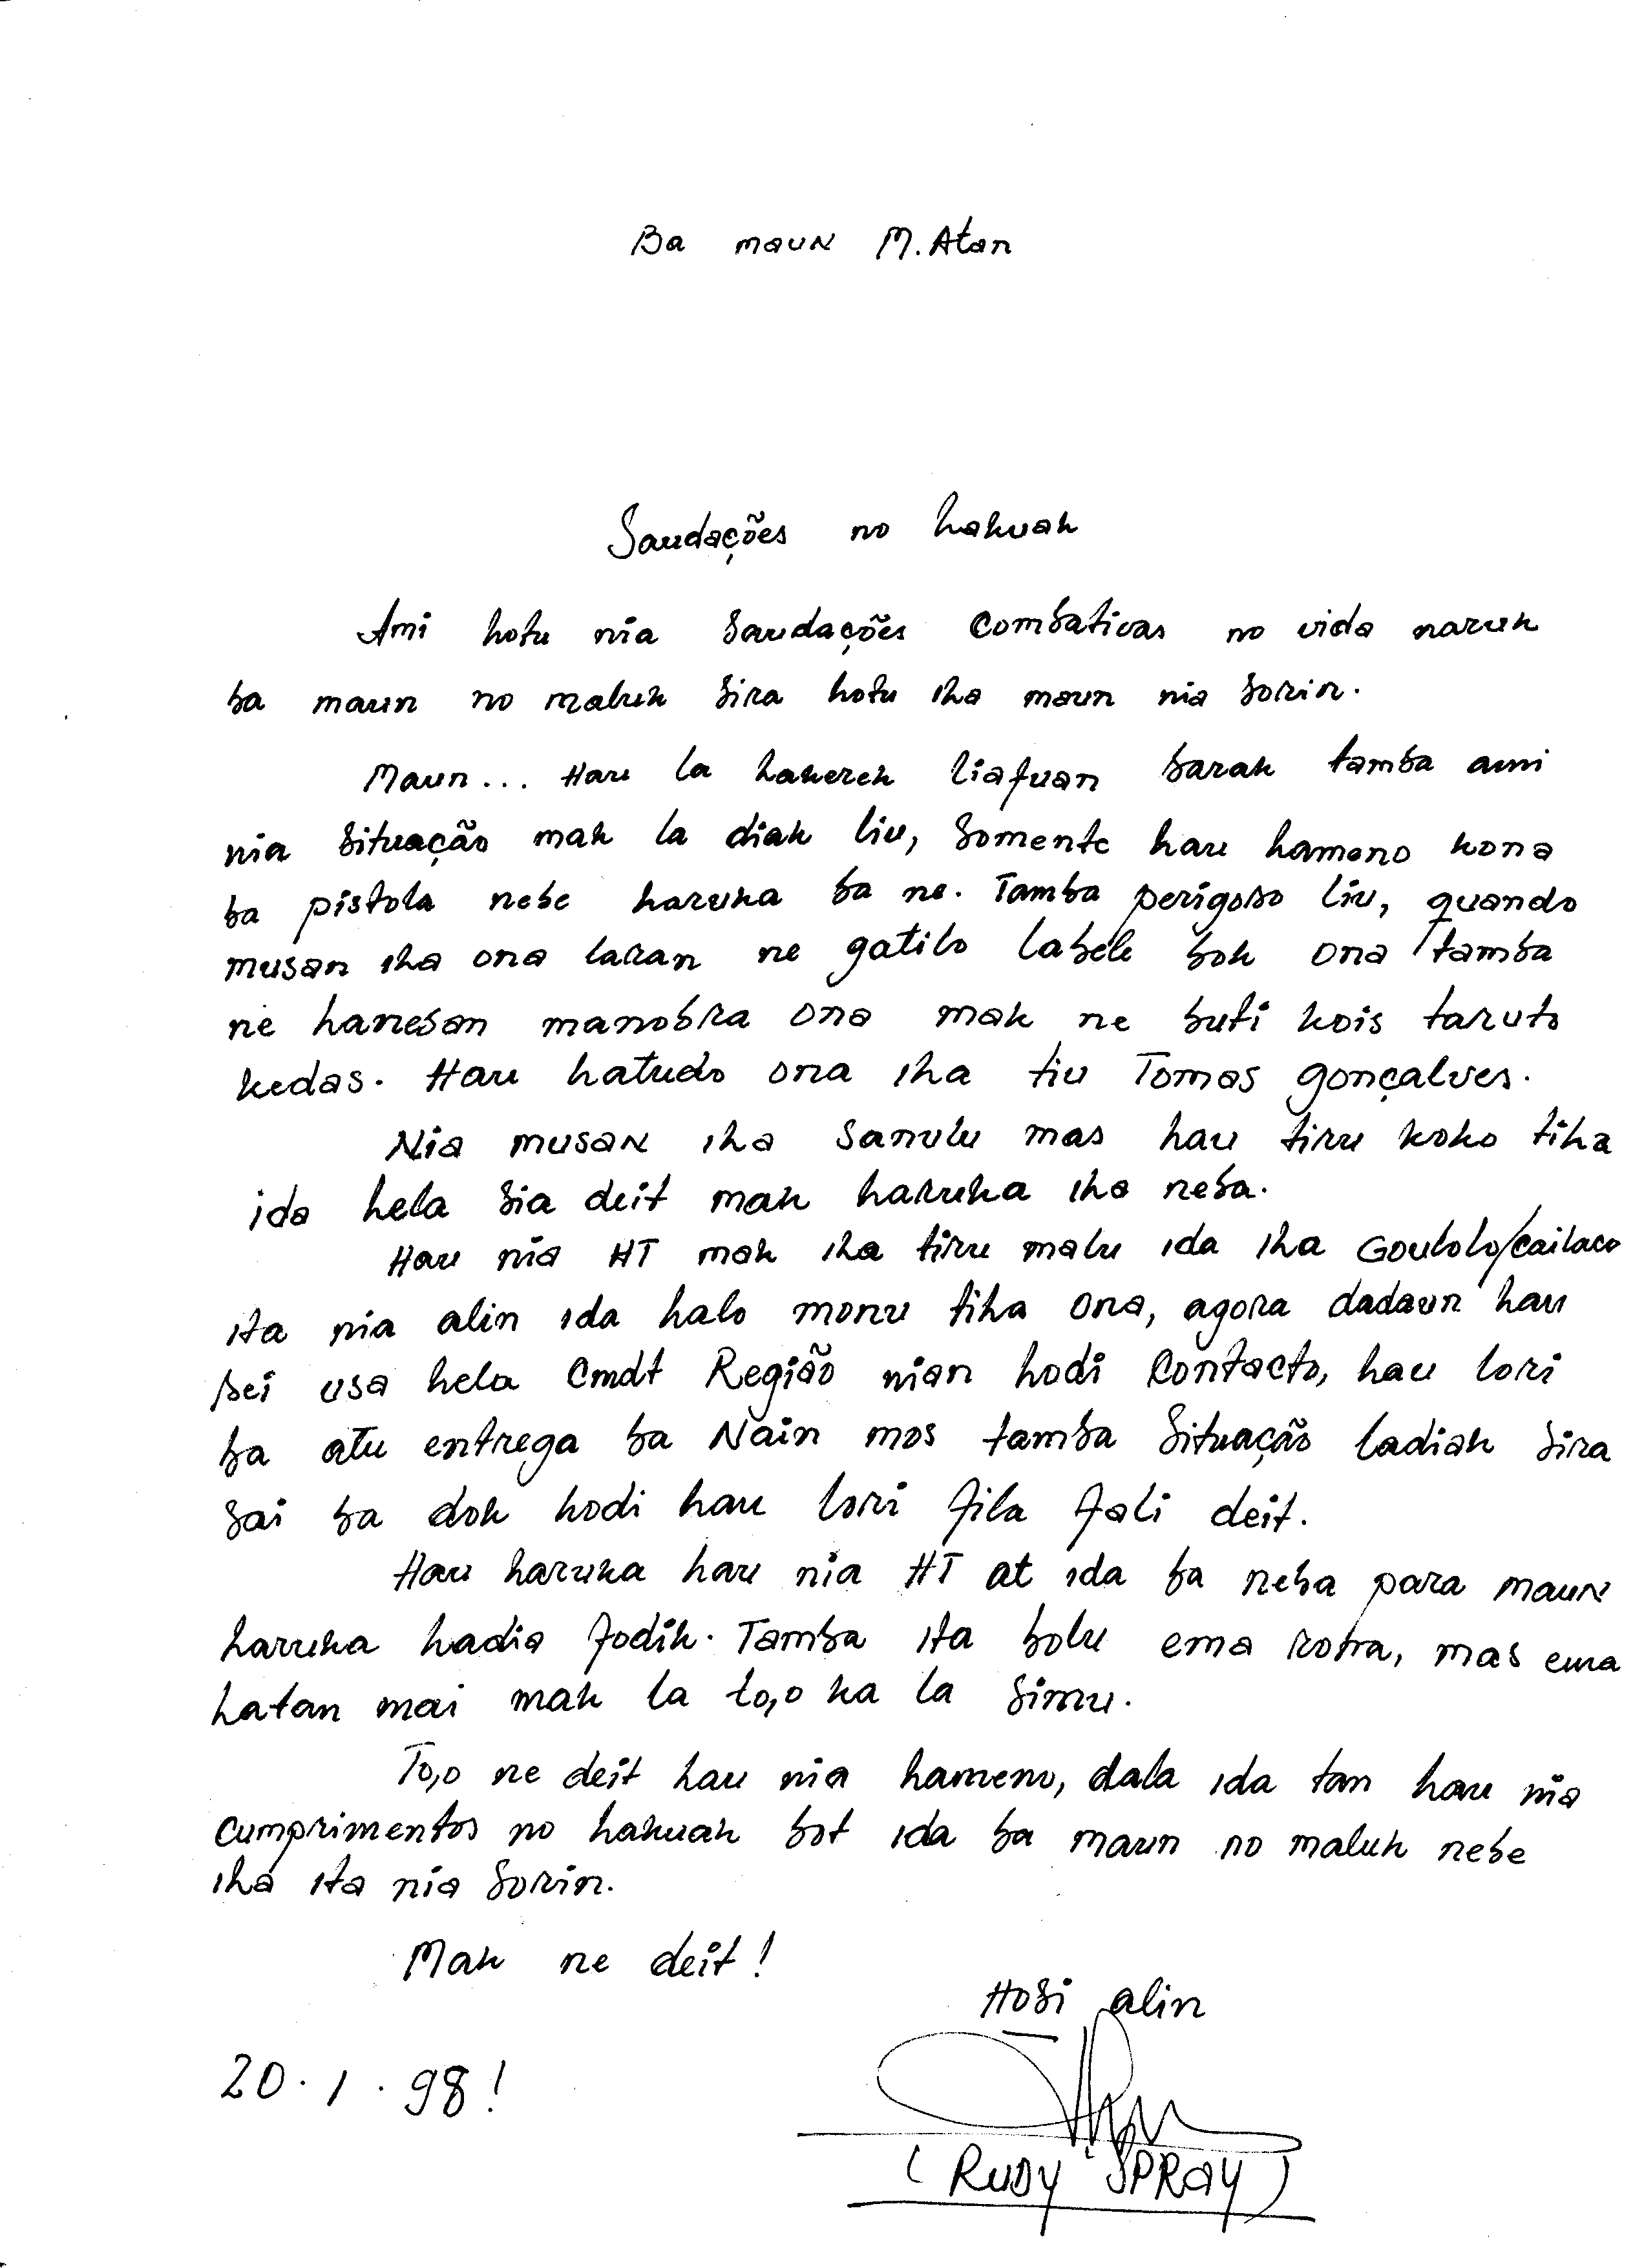 Ba maun M. Atan
Saudações no hakuak
Ami hotu nia saudações combativas no vida naruk
ba maun no maluk sira hotu iha maun nia sorin.
Maun... Hau la hakerek liafuan barak tamba ami
nia situação mak la diak liu, somente hau hameno kona
ba pistola nebe haruka ba ne. Tamba perigoso liu, quando
musan iha ona laran ne gatilo labele bok ona tamba
ne hanesan manobra ona mak ne buti kois taruto
kedas. Hau hatudo ona iha tiu Tomas gonçalves.
Nia musan iha sanulu mas hau tiru koko tiha
ida hela sia deit mak haruka iha neba.
Hau nia HT mak iha tiru malu ida iha Goulolo/Cailaco
ita nia alin ida halo monu tiha ona, agora dadaun hau
sei usa hela Cmdt Região nian hodi Contacto, hau lori
ba atu entrega ba Nain mos tamba situação ladiak sira
sai ba dok hodi hau lori fila fali deit.
Hau haruka hau nia HT at ida ba neba para maun
haruka hadia fodik. Tamba ita bolu ema rona, mas ema
hatan mai mak la to,o ka la simu.
To,o ne deit hau nia hameno, dala ida tan hau nia
cumprimentos no hakuak bot ida ba maun no maluk nebe
iha ita nia sorin.
Mak ne deit!
Hosi alin
20.1.98!
(RUDY SPRAY)